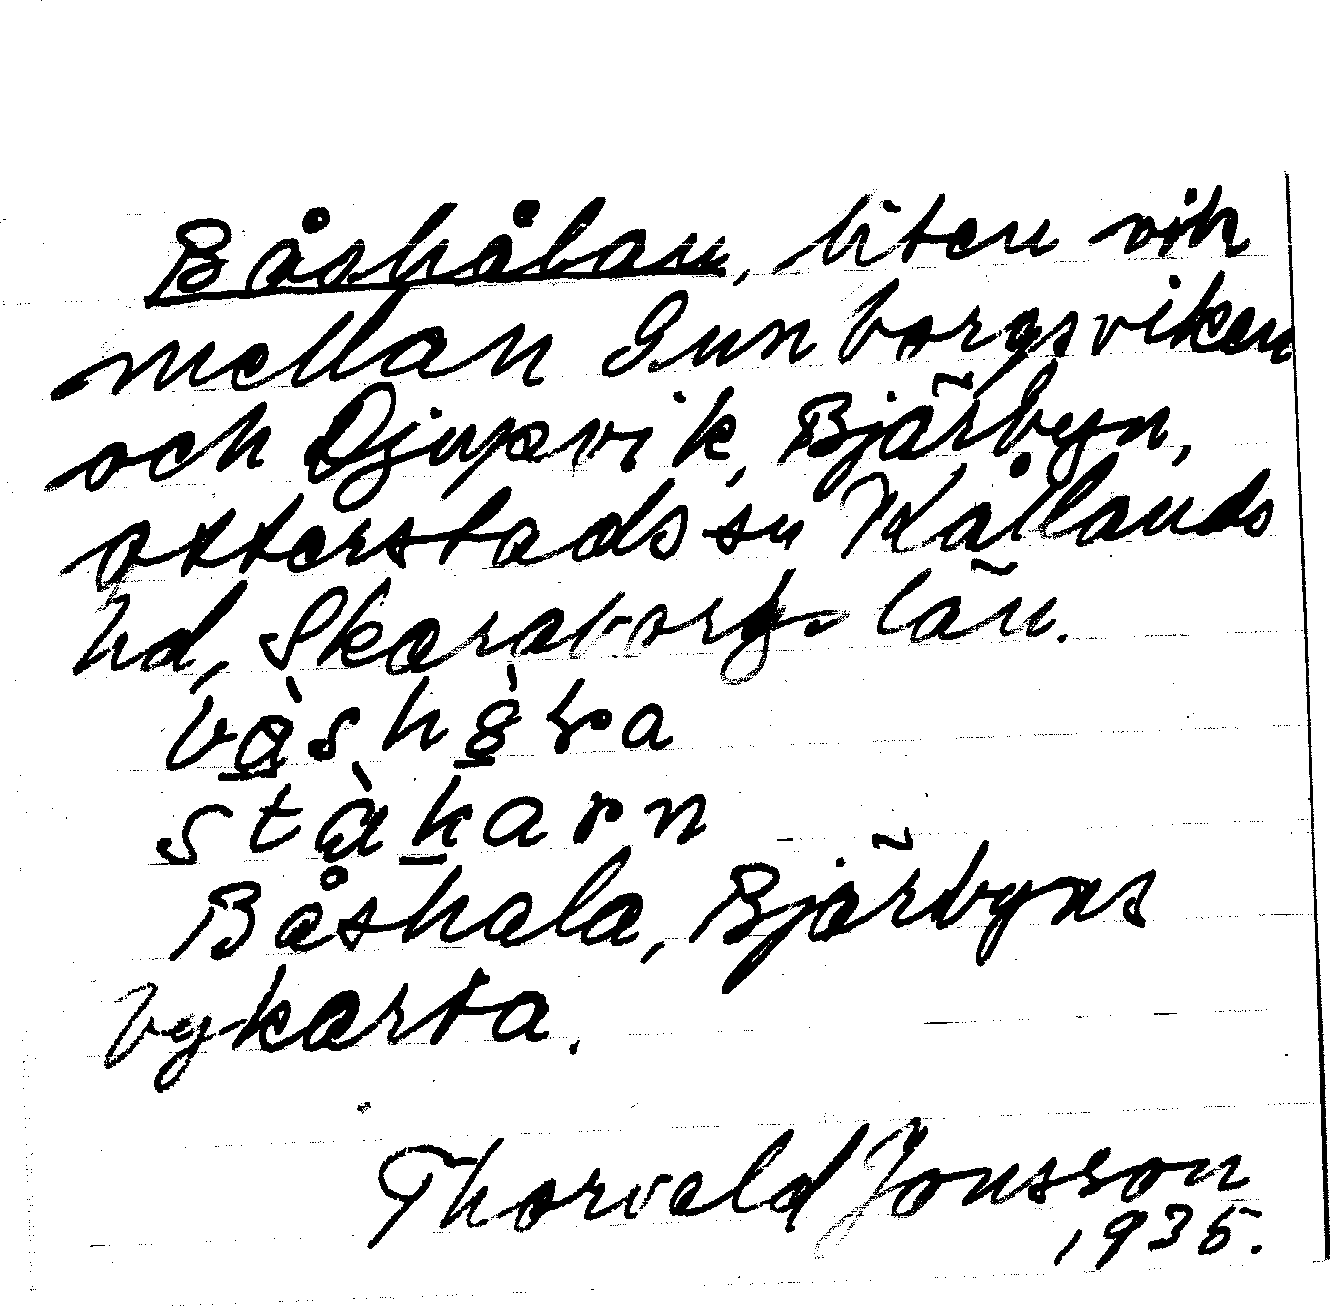 Båshålan, liten vik
mellan Gunborgsviken
och Djupevik, Bjärbyn,
Otterstads sn Kållands
hd, Skaraborgs län.
Båshala, Bjärbyns
bykarta.
Thorvald Jonsson
1935.